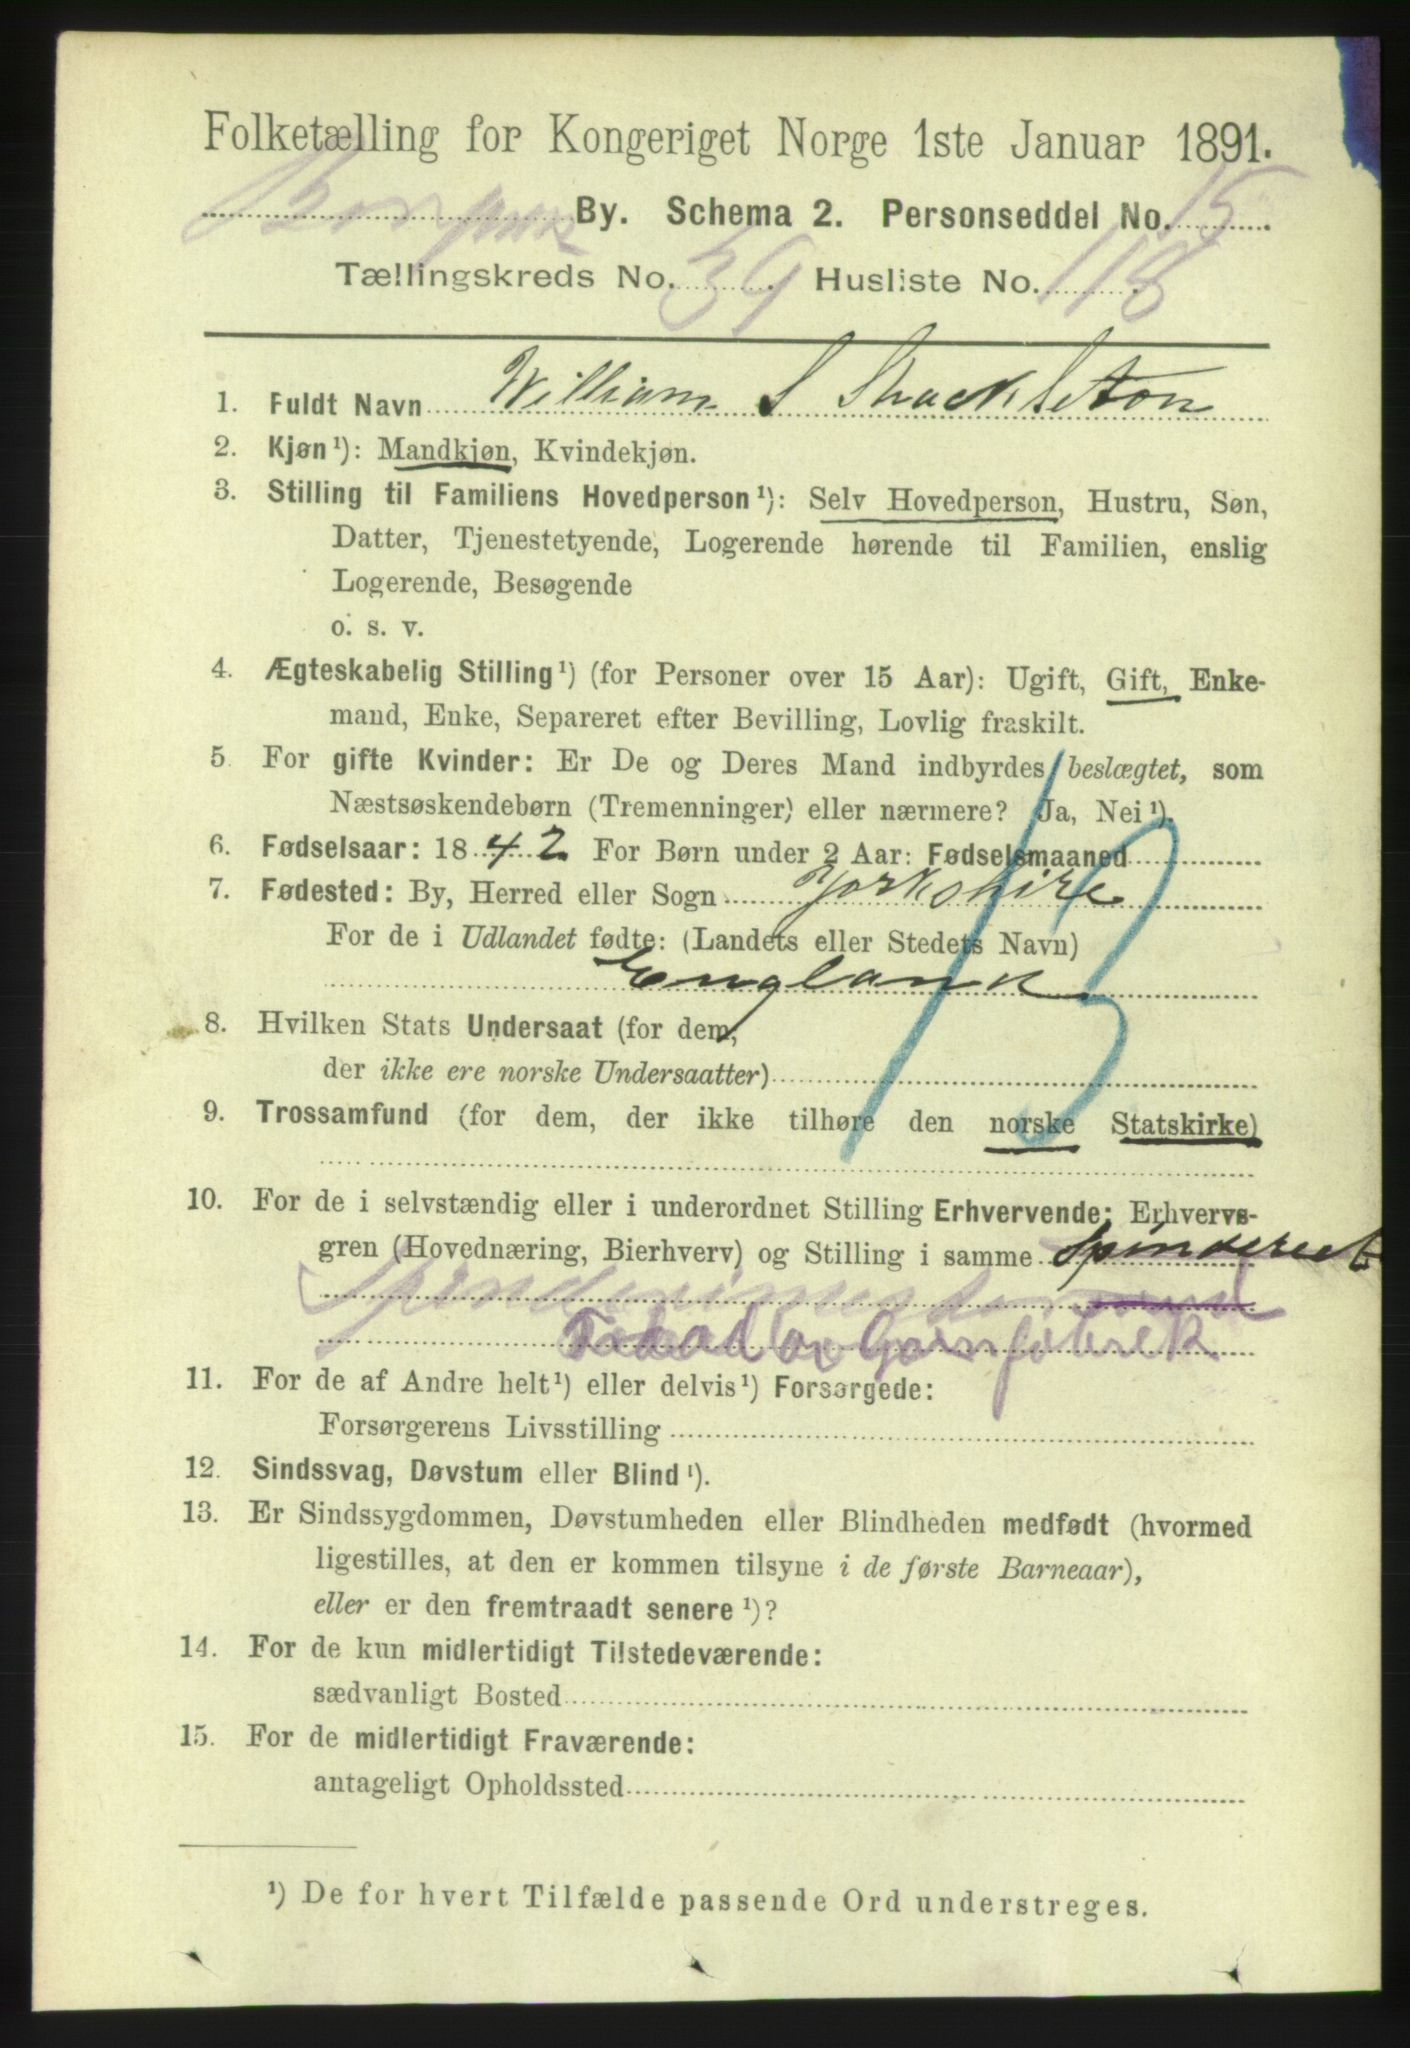 Folketælling for Kongeriget Norge 1ste Januar 1891.
Bergen By. Schema 2. Personseddel No. 15
Tællingskreds No. 39 Husliste No. 118
1. Fuldt Navn William S Shackleton
2. Kjøn¹): Mandkjøn, Kvindekjøn.
3. Stilling til Familiens Hovedperson¹): Selv Hovedperson, Hustru, Søn,
Datter, Tjenestetyende, Logerende hørende til Familien, enslig
Logerende, Besøgende
o. s. v.
4. Ægteskabelig Stilling¹) (for Personer over 15 Aar): Ugift, Gift, Enke-
mand, Enke, Separeret efter Bevilling, Lovlig fraskilt.
5. For gifte Kvinder: Er De og Deres Mand indbyrdes beslægtet, som
Næstsøskendebørn (Tremenninger) eller nærmere? Ja, Nei¹).
6. Fødselsaar: 1842 For Børn under 2 Aar: Fødselsmaaned
7. Fødested: By, Herred eller Sogn Yorkshire
For de i Udlandet fødte: (Landets eller Stedets Navn)
England
8. Hvilken Stats Undersaat (for dem,
der ikke ere norske Undersaatter)
9. Trossamfund (for dem, der ikke tilhøre den norske Statskirke)
10. For de i selvstændig eller i underordnet Stilling Erhvervende: Erhvervs-
gren (Hovednæring, Bierhverv) og Stilling i samme Spinderiet
Garnfabrik
11. For de af Andre helt¹) eller delvis¹) Forsørgede:
Forsørgerens Livsstilling
12. Sindssvag, Døvstum eller Blind¹).
13. Er Sindssygdommen, Døvstumheden eller Blindheden medfødt (hvormed
ligestilles, at den er kommen tilsyne i de første Barneaar),
eller er den fremtraadt senere¹)?
14. For de kun midlertidigt Tilstedeværende:
sædvanligt Bosted
15. For de midlertidigt Fraværende:
antageligt Opholdssted
¹) De for hvert Tilfælde passende Ord understreges.